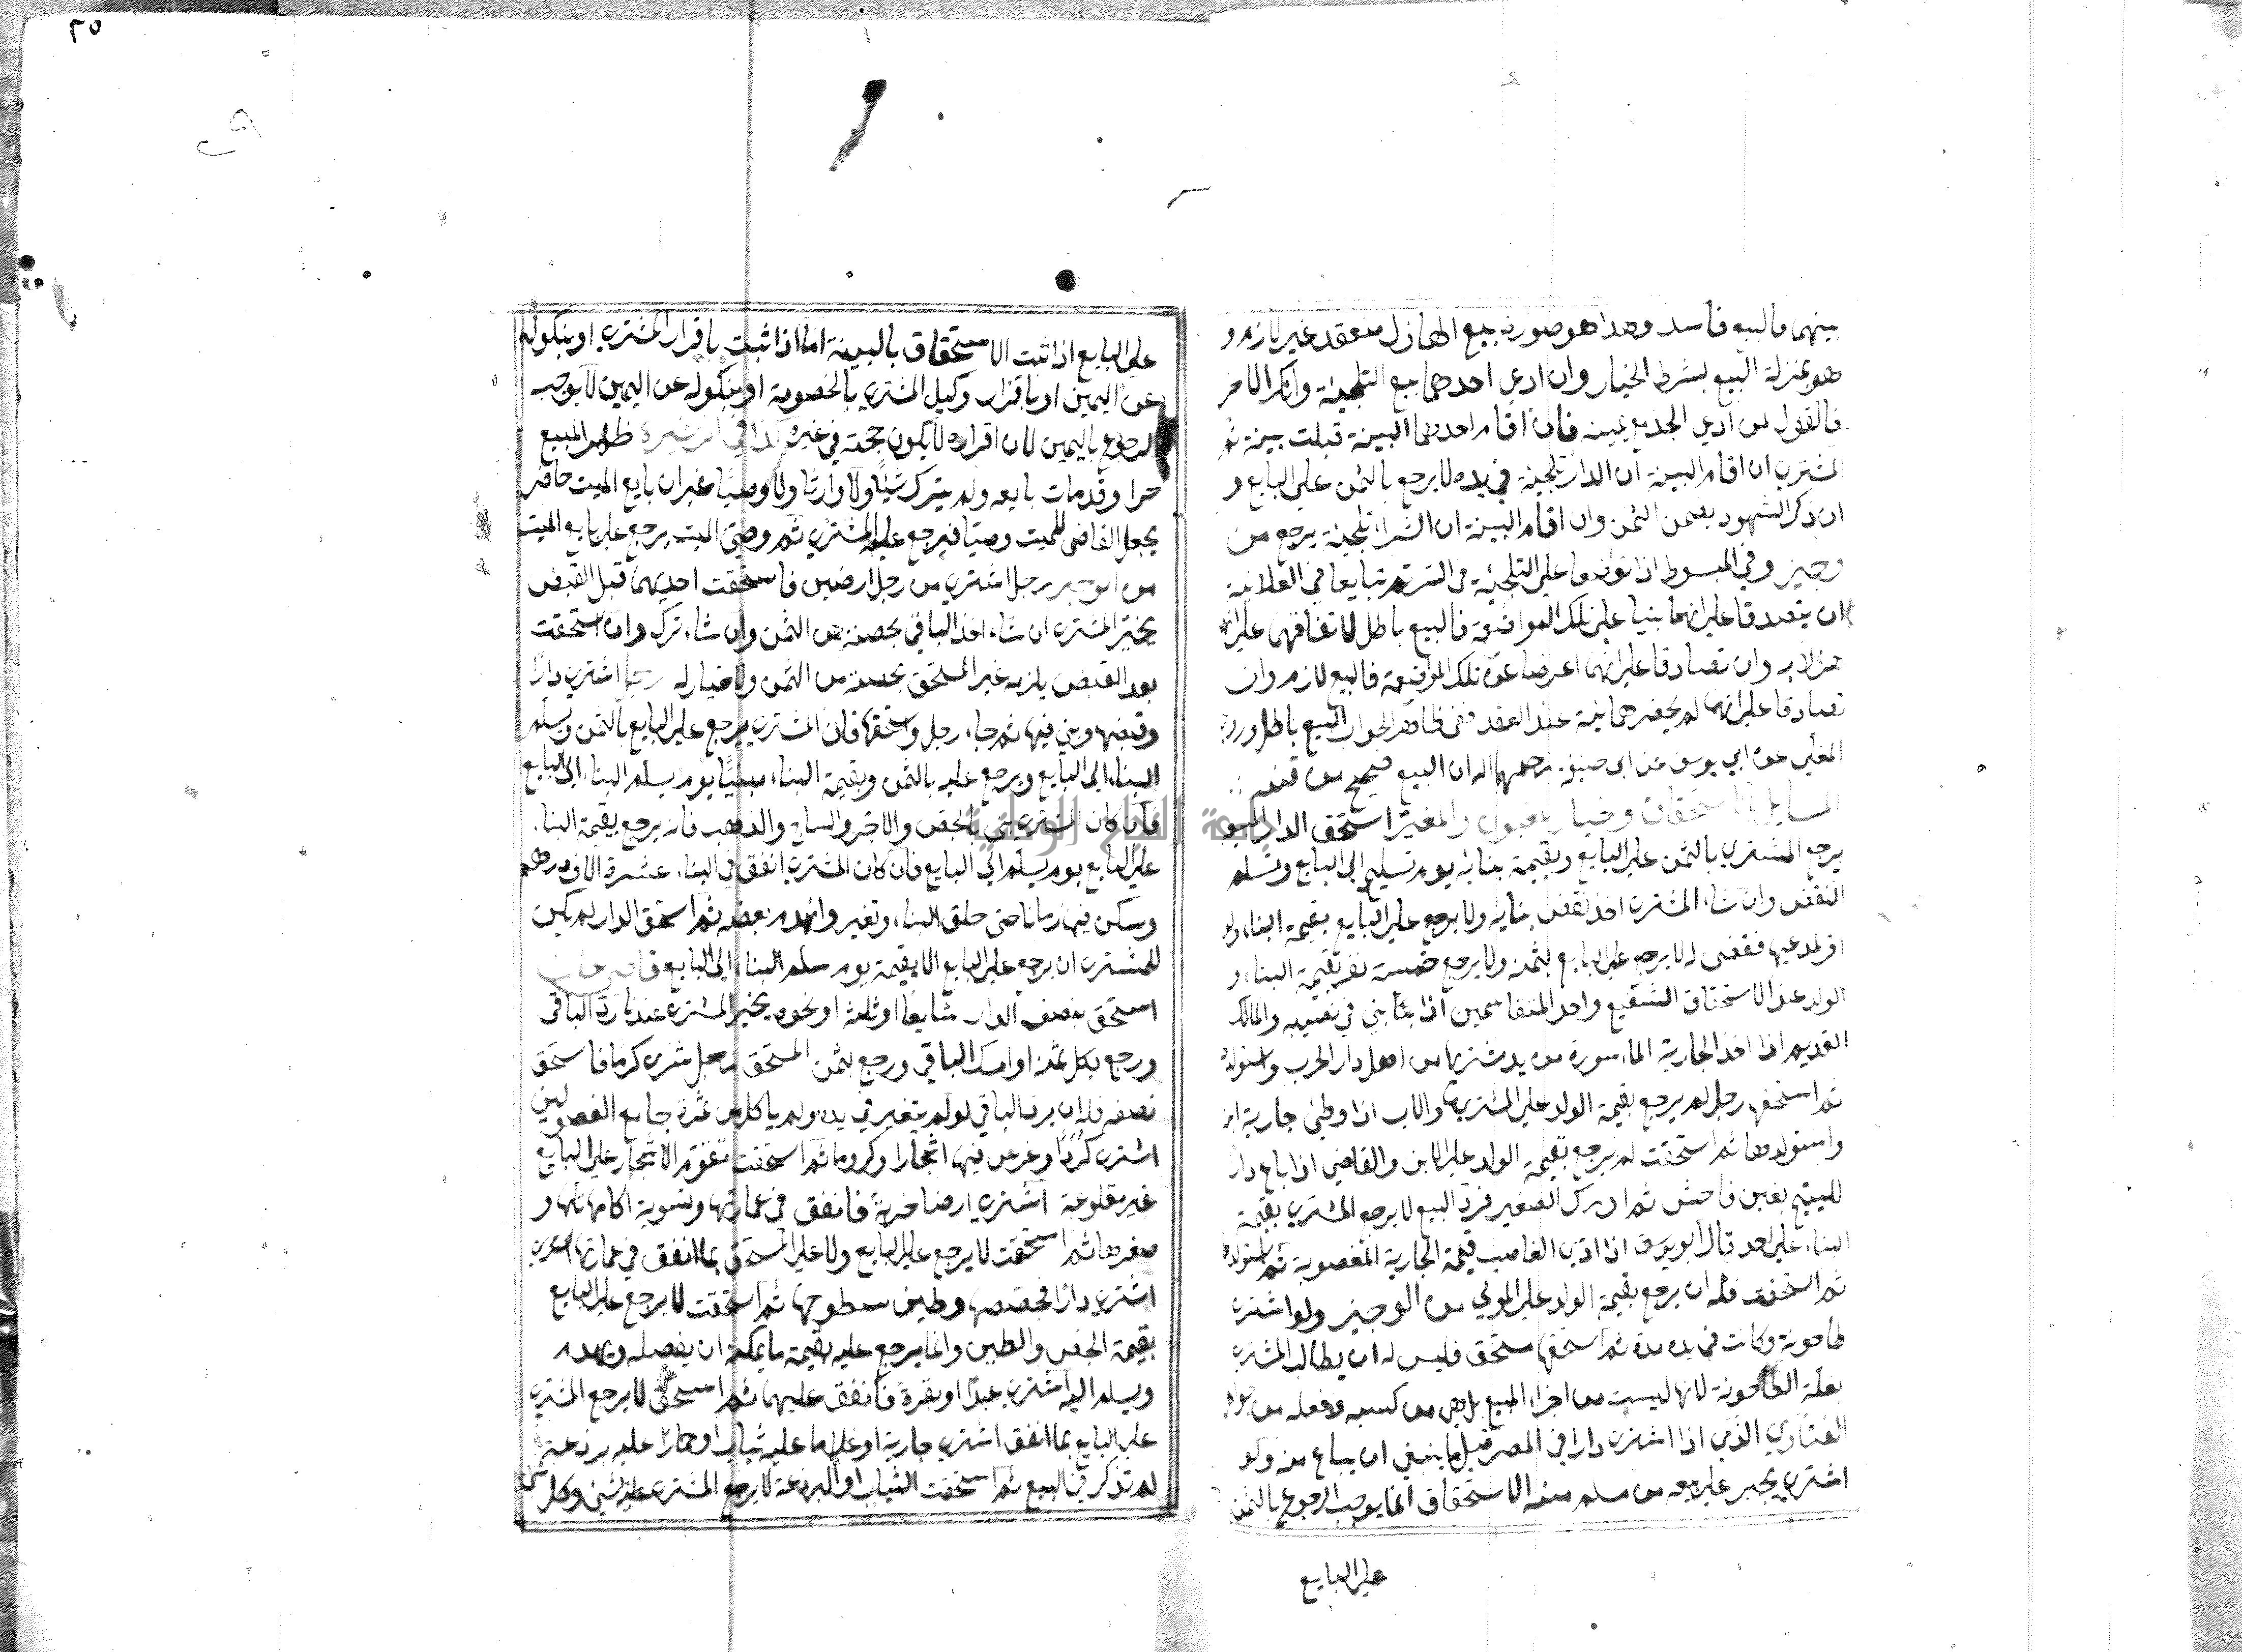 ٢٥
بينهما فالبيع فاسد وهذا هو صورة بيع الهازل منعقد غير لازم و
هو بمنزلة البيع بشرط الخيار وان ادعى احدهما بيع التلجئة وانكر الاخر
فالقول لمن ادعى الجد مع يمينه فان اقام احدهما البينة قبلت بينة ثم
المشترى ان اقام البينة ان الدار تلجئة في يده لا يرجع بالثمن على البايع و
ان ذكر الشهود بعض الثمن وان اقام البينة ان الشراء تلجئة يرجع من
وجيز وفي المبسوط اذا تواضعا على التلجئة في السر ثم تبايعا في العلانية
ان يتصدقا على انهما بنيا على تلك المواضعة فالبيع باطل لاتفاقهما على انهما
هزلا به وان تصادقا على انهما اعرضا عن تلك المواضعة فالبيع لازم وان
تصادقا على انهما لم يحضرهما نية عند العقد ففي ظاهر الجواب البيع باطل وروى
المعلى عن ابي يوسف عن ابى حنيفة رحمهما الله ان البيع صحيح من قنيه
المسايل الاستحقاق وخيار المغبون والمغتر استحق الدار المبيع
يرجع المشترى بالثمن على البايع وبقيمة بنائه يوم تسليم الى البايع وتسلم
النقض وان شاء المشترى اخذ نقض بنايه ولا يرجع على البايع بقيمة البناء ولو
اقر لمدعيها فقضى له لا يرجع على البايع بثمنه ولا يرجع خمسة نفر بقيمة البناء و
الولد عند الاستحقاق الشفيع واحد المتقاسمين اذا بنى في نصيبه والمالك
القديم اذا اخذ الجارية المأسورة من يد مشتريها من اهل دار الحرب واستولد
ثم استحقها رجل لم يرجع بقيمة الولد على المشترى والاب اذا وطئ جارية ابنه
واستولدها ثم استحقت لم يرجع بقيمة الولد على الابن والقاضي اذا باع دار
لليتيم بغبن فاحش ثم ادرك الصغير فرد البيع لا يرجع المشترى بقيمة
البناء على احد قال ابو يوسف اذا ادى الغاصب قيمة الجارية المغصوبة ثم استولدها
ثم استحقت فله ان يرجع بقيمة الولد على المولى من الوجيز ولو اشترى
طاحونة وكانت في يده مدة ثم استحقها مستحق فليس له ان يطالب المشترى
بغلة الطاحونة لانها ليست من اجزاء المبيع بل هي من كسبه وفعله من جواهر
الفتاوي الذمى اذا اشترى دارا في المصر قيل ما ينبغي ان يباع منه ولو
اشترى يجبر على بيعه من مسلم منه الاستحقاق انما يوجب الرجوع بالثمن
على البايع
على البايع اذا ثبت الاستحقاق بالبينة اما اذا ثبت باقرار المشترى او بنكوله
عن اليمين او باقرار وكيل المشترى بالخصومة او بنكوله عن اليمين لا يوجب
الرجوع باليمين لان اقراره لا يكون حجة في غيره كذا في الذخيرة ظهر المبيع
حرا وقد مات بايعه ولم يترك شيئا ولا وارثا ولا وصيا غير ان بايع الميت حاضر
يجعل القاضى للميت وصيا فيرجع عليه المشترى ثم وصى الميت يرجع على بايع الميت
من الوجيز رجل اشترى من رجل ارضين فاستحقت احديهما قبل القبض
يخير المشترى ان شاء اخذ الباقي بحصته من الثمن وان شاء ترك وان استحقت
بعد القبض يلزمه غير المستحق بحصته من الثمن ولا خيار له رجل اشترى دارا
وقبضها وبنى فيها ثم جاء رجل واستحقها فان المشترى يرجع على البايع بالثمن ويسلم
البناء الى البايع ويرجع عليه بالثمن وبقيمة البناء مبنيا يوم يسلم البناء الى البايع
فان كان المشترى بنى بالجص والآجر والساج والذهب فانه يرجع بقيمة البناء
على البايع يوم يسلم الى البايع فان كان المشترى انفق في البناء عشرة الاف درهم
وسكن فيها زمانا حتى خلق البناء وتغير وانهدم بعضه ثم استحق الدار لم يكن
للمشترى ان يرجع على البايع الا بقيمة يوم سلم البناء الى البايع قاضى خان
استحق نصف الدار مشايعا او ثلثه او نحوه يخير المشترى عندنا رد الباقى
ورجع بكل ثمنه او امسك الباقي ورجع بثمن المستحق رجل شرى كرما فاستحق
نصفه فله ان يرد الباقي لو لم يتغير في يده ولم ياكل من ثمره جامع الفصولين
اشترى كرما وغرس فيها اشجارا وكروما ثم استحقت تقوم الاشجار على البايع
غير مقلوعة اشترى ارضا خربة فانفق في عمارتها وتسوية اكامها و
حفرها ثم استحقت لا يرجع على البايع ولا على المستحق بما انفق في عمارتها
اشترى دارا فجصصها وطين سطوحها ثم استحقت لا يرجع على البايع
بقيمة الجص والطين وانما يرجع عليه بقيمة ما يمكنه ان يفصله ويهدم
ويسلم اليه اشترى عبدا او بقرة فانفق عليهما ثم استحق لا يرجع المشترى
على البايع بما انفق اشترى جارية او غلاما عليه ثياب او حمارا عليه برذعة
لم تذكر في البيع ثم استحقت الثياب او البرذعة لا يرجع المشترى عليه بشئ وكل شئ